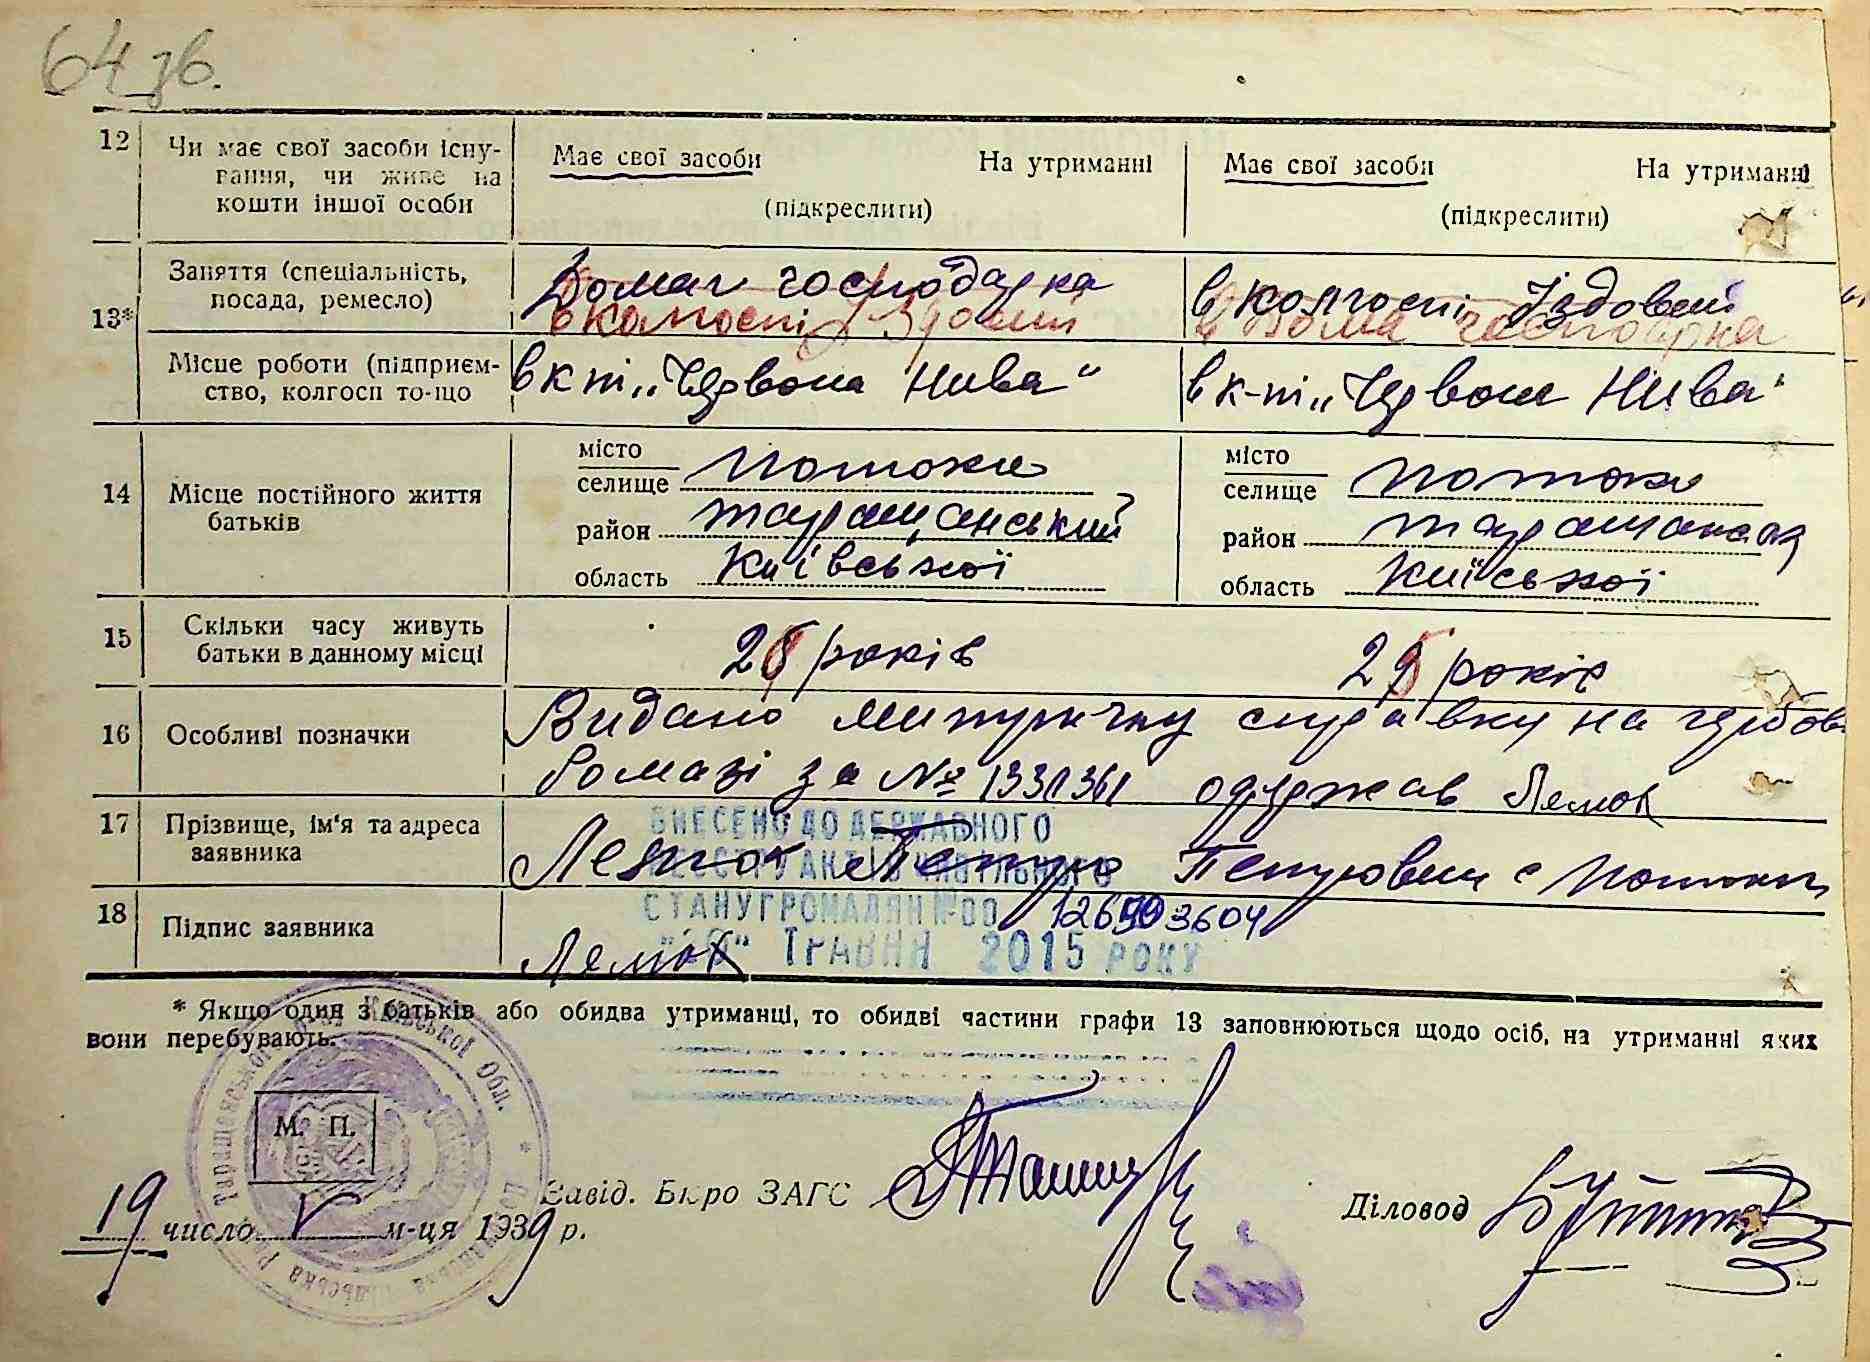 64 зв.
12 Чи має свої засоби існування, чи живе на кошти іншої особи
Має свої засоби На утриманні
(підкреслити)
Має свої засоби На утриманні
(підкреслити)
13* Заняття (спеціальність, посада, ремесло)
Домаг господарка
в колгоспі Їздовий
в колгоспі Їздовий
Дома господарка
Місце роботи (підприємство, колгосп то-що
в к-т „Червона Нива"
в к-т „Червона Нива"
14 Місце постійного життя батьків
місто
селище Потоки
район таращанський
область київської
місто
селище Потоки
район
область
15 Скільки часу живуть батьки в данному місці
років
років
16 Особливі позначки
Видано метричну справку на гербов
бомазі за № 1331361 одержав
17 Прізвище, ім'я та адреса заявника
Петро Петрович с Потоки
18 Підпис заявника
ВНЕСЕНО ДО ДЕРЖАВНОГО
РЕЄСТРУ АКТІВ ЦИВІЛЬНОГО
СТАНУ ГРОМАДЯН № 00
ТРАВНЯ 2015 РОКУ
* Якщо один з батьків або обидва утриманці, то обидві частини графи 13 заповнюються щодо осіб, на утриманні яких
вони перебувають.
Таращанського Київської Обл.
М. П.
19 число V м-ця 1939 р.
Завід. Бюро ЗАГС
Діловод